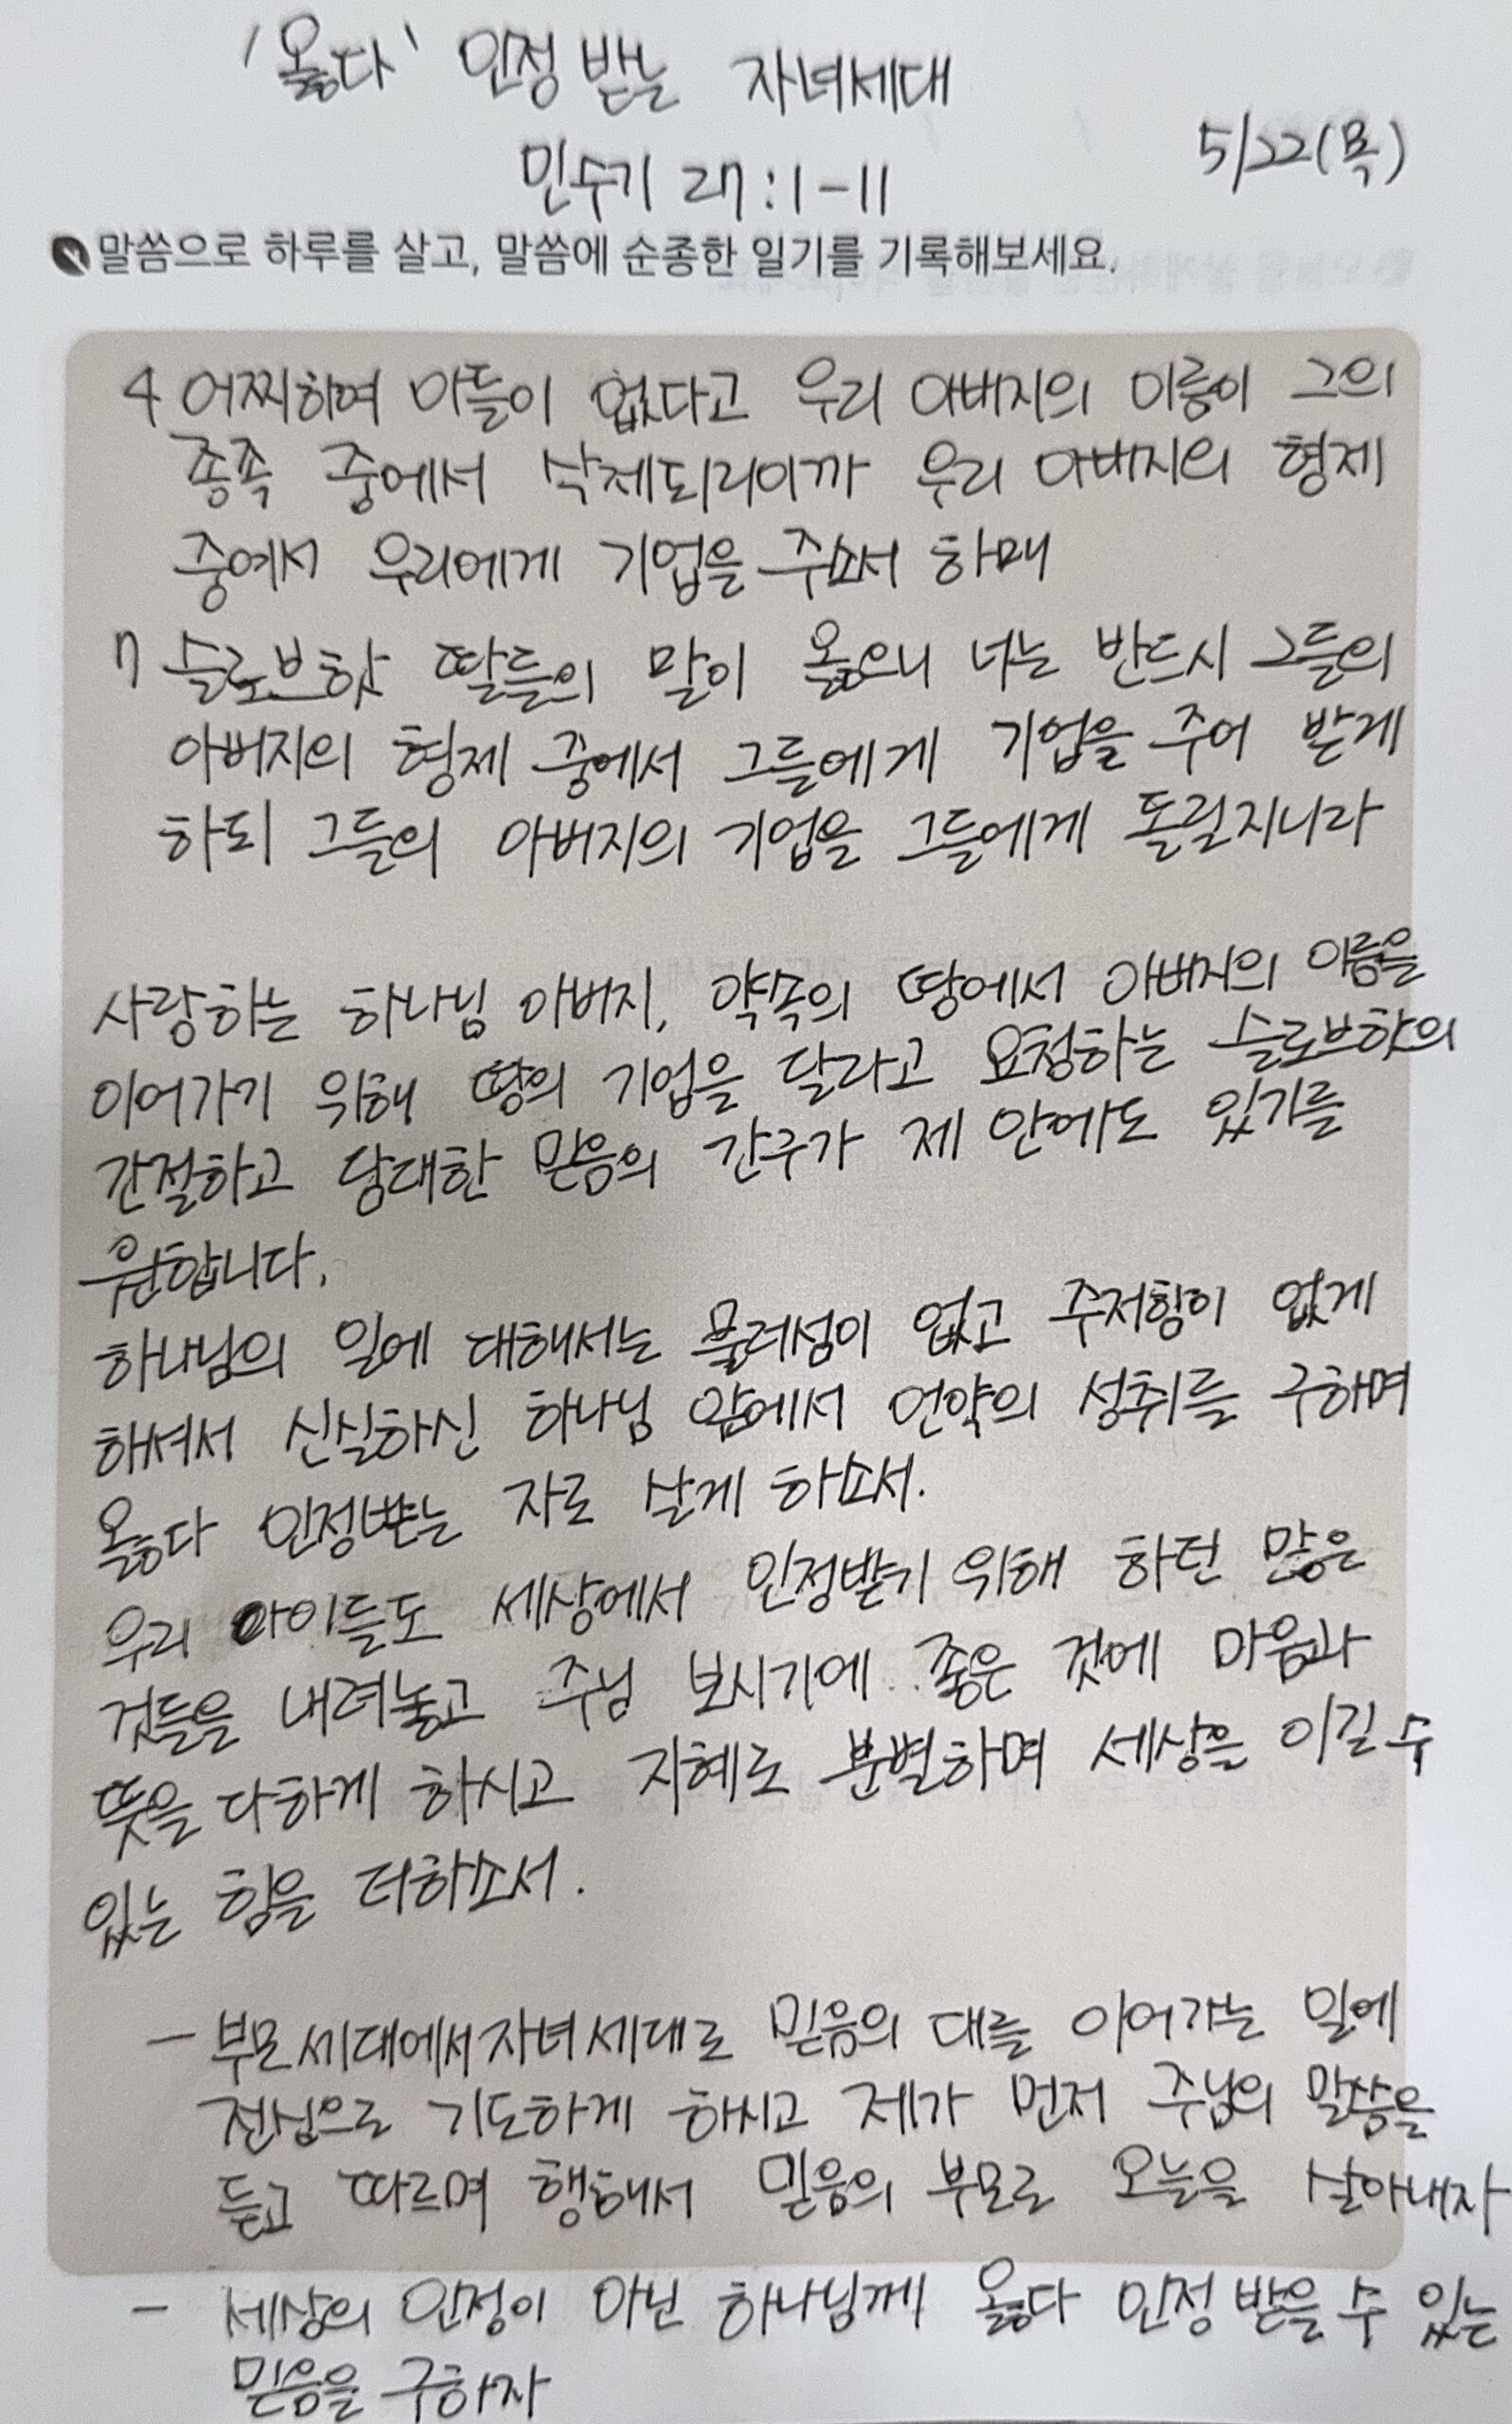 '옳다' 인정 받는 자녀세대
민수기 27:1-11
5/22(목)
말씀으로 하루를 살고, 말씀에 순종한 일기를 기록해보세요.
4 어찌하여 아들이 없다고 우리 아버지의 이름이 그의
종족 중에서 삭제되리이까 우리 아버지의 형제
중에서 우리에게 기업을 주소서 하매
7 슬로브핫 딸들의 말이 옳으니 너는 반드시 그들의
아버지의 형제 중에서 그들에게 기업을 주어 받게
하되 그들의 아버지의 기업을 그들에게 돌릴지니라
사랑하는 하나님 아버지, 약속의 땅에서 아버지의 이름을
이어가기 위해 땅의 기업을 달라고 요청하는 슬로브핫의
간절하고 당대한 믿음의 간구가 제 안에도 있기를
원합니다.
하나님의 일에 대해서는 물러섬이 없고 주저함이 없게
하셔서 신실하신 하나님 앞에서 언약의 성취를 구하며
옳다 인정받는 자로 살게 하소서.
우리 아이들도 세상에서 인정받기 위해 하던 많은
것들을 내려놓고 주님 보시기에 좋은 것에 마음과
뜻을 다하게 하시고 지혜로 분별하며 세상을 이길 수
있는 힘을 더하소서.
- 부모세대에서 자녀세대로 믿음의 대를 이어가는 일에
전심으로 기도하게 하시고 제가 먼저 주님의 말씀을
듣고 따르며 행해서 믿음의 부모로 오늘을 살아내자
- 세상의 인정이 아닌 하나님께 옳다 인정 받을 수 있는
믿음을 구하자